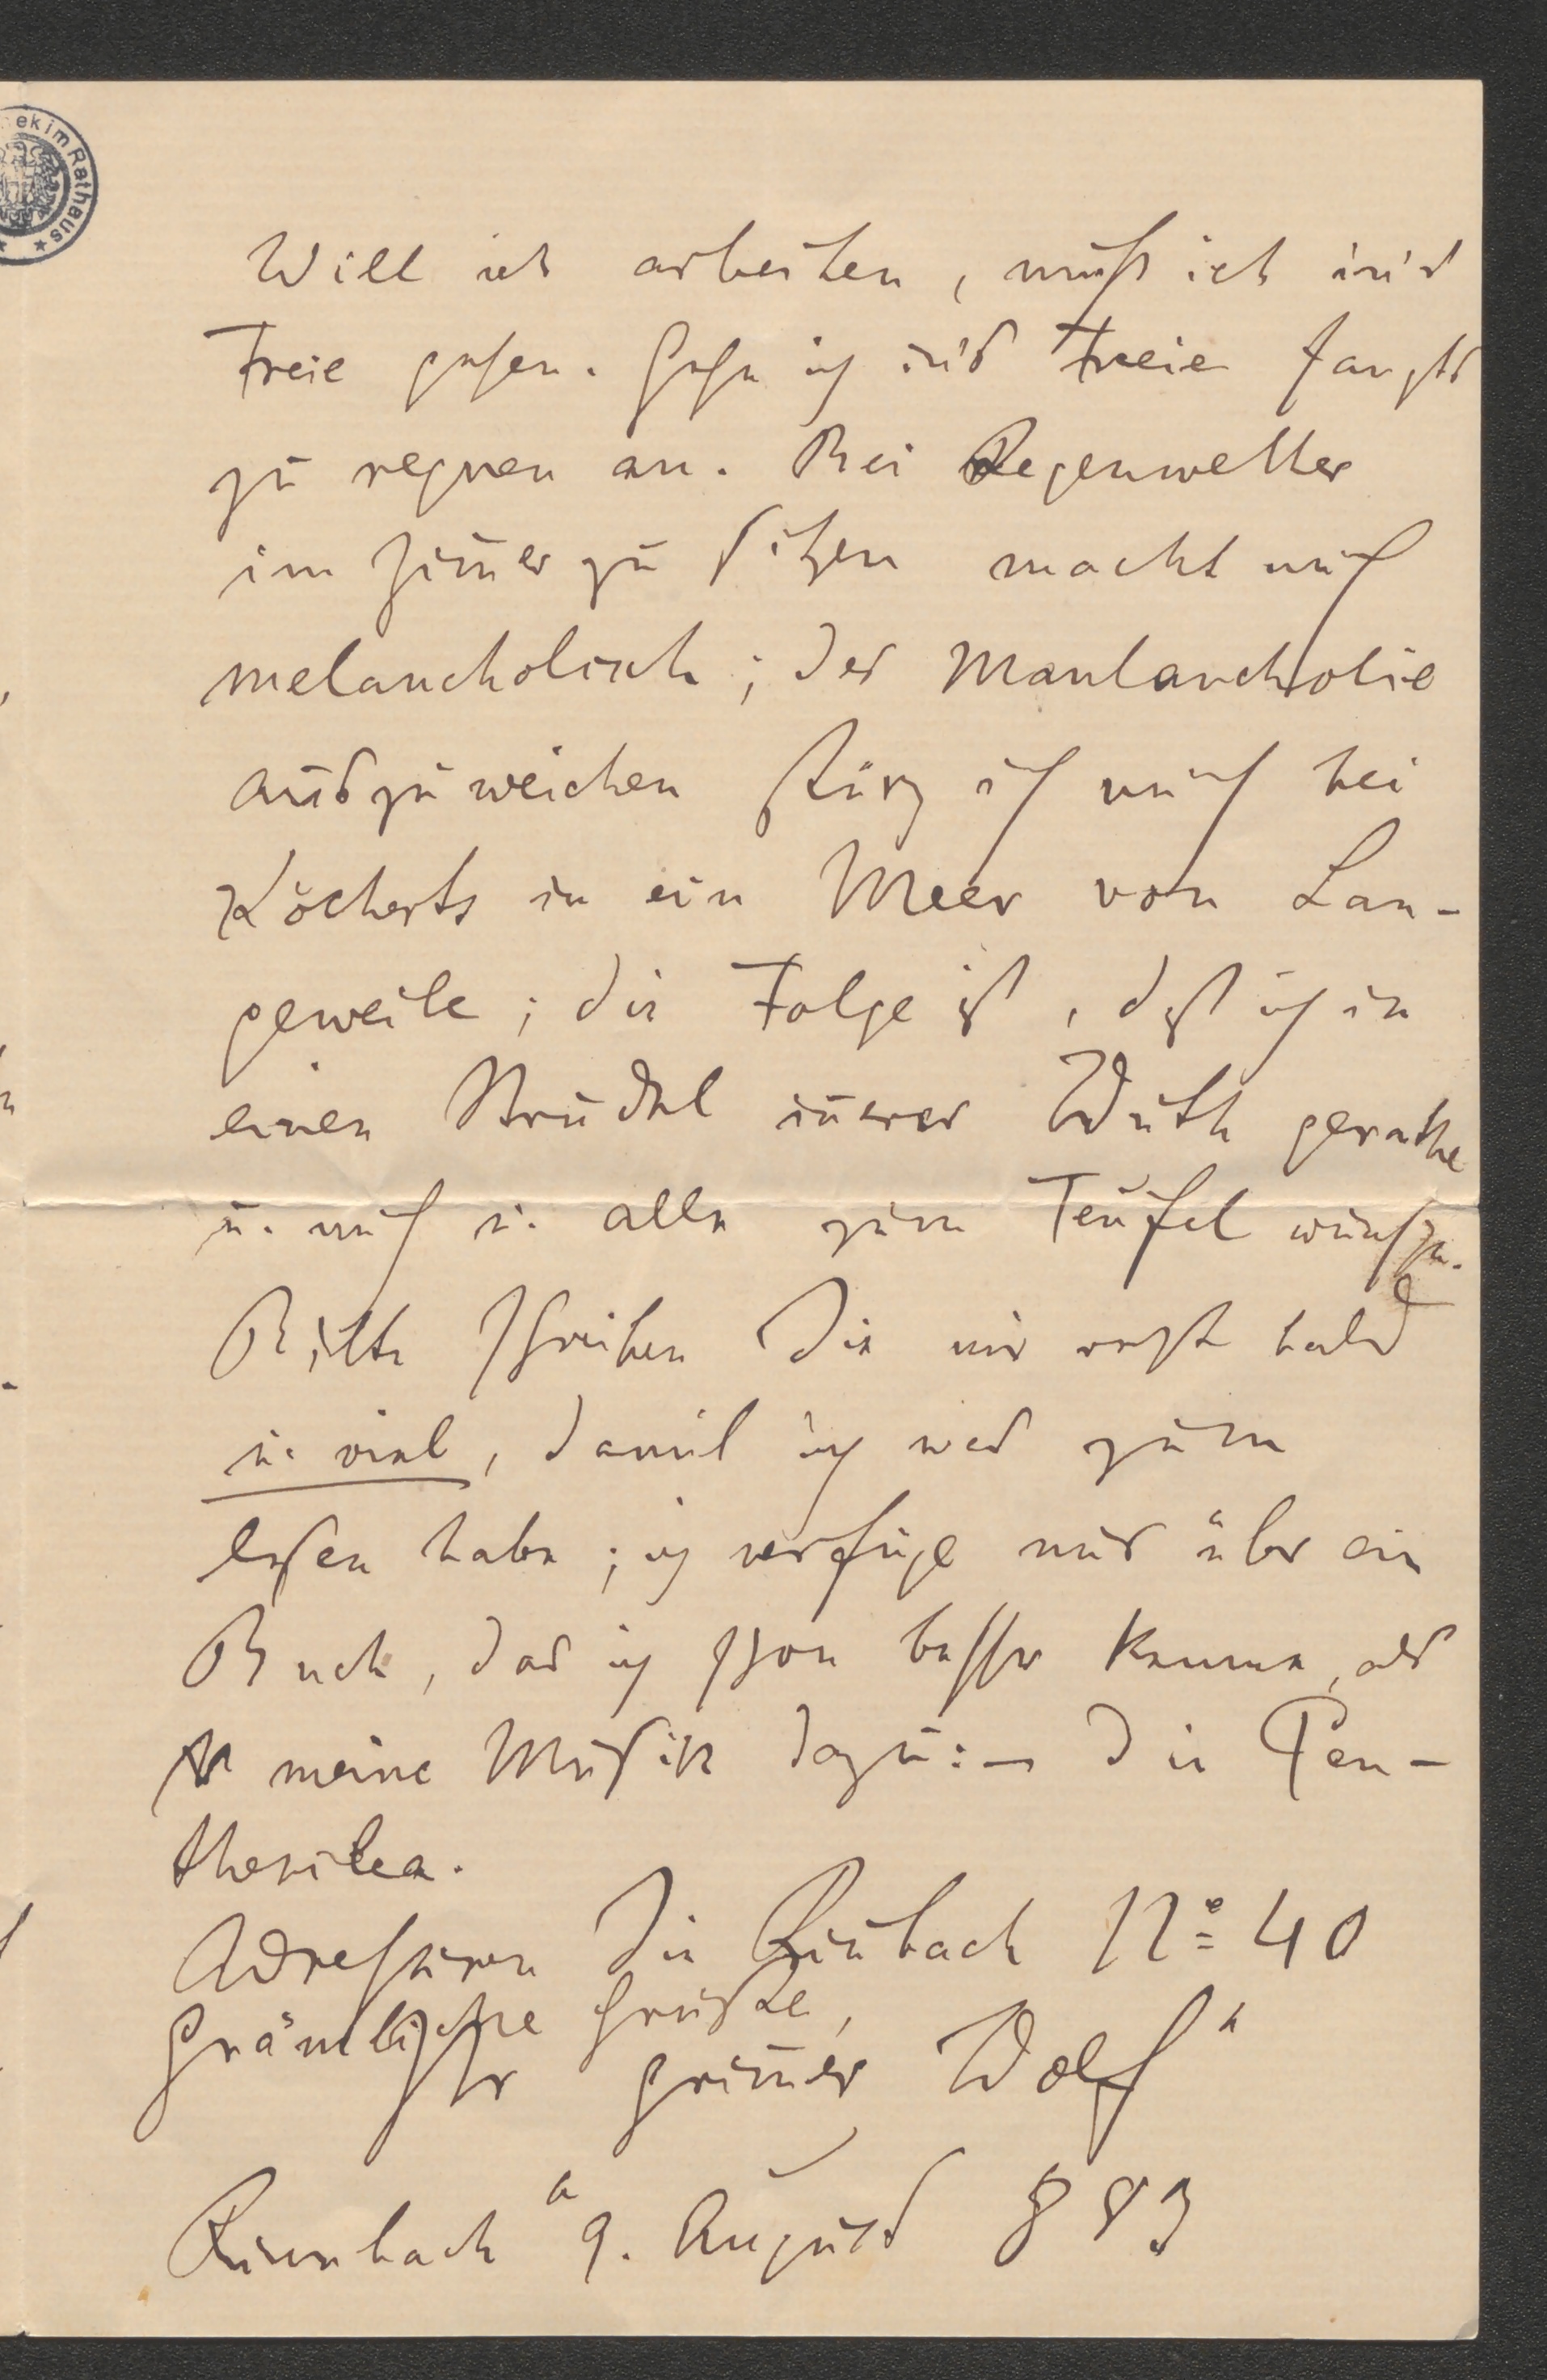 ek im Rathaus
Will ich arbeiten, muß ich in's
Freie gehen. Gehe ich in's Freie fangts
zu regnen an. Bei Regenwetter
im Zim̄er zu sitzen macht mich
melancholisch; der Manlancholie
auszuweichen stürz ich mich bei
Köcherts in ein Meer von Lan-
geweile; die Folge ist, daß ich in
einen Strudel in̄erer Wuth gerathe
u. mich u. alle zum Teufel wünsche.
Bitte schreiben Sie mir recht bald
u. viel, damit ich was zum
lesen habe; ich verfüge nur über ein
Buch, das ich schon besser kenne, als
meine Musik dazu: – die Pen-
thesilea.
Adressiren Sie Rin̄bach No 40
Grämliche Grüße,
Ihr grim̄er Wolf
Rinnbach 9. August 883